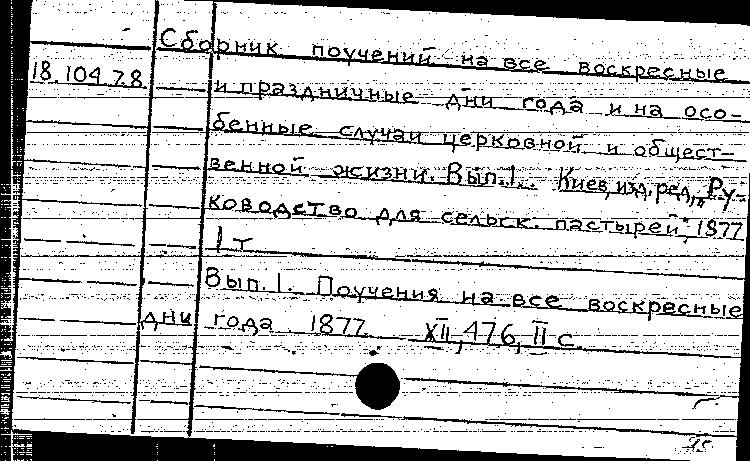 Сборник поучений на все воскресные
18.104.7.8. и праздничные дни года и на осо-
бенные случаи церковной и общест-
венной жизни. Вып.1. Киев, изд. ред. „Ру-
ководство для сельск. пастырей", 1877
1 т
Вып. 1. Поучения на все воскресные
дни года 1877 XII, 476, II с.